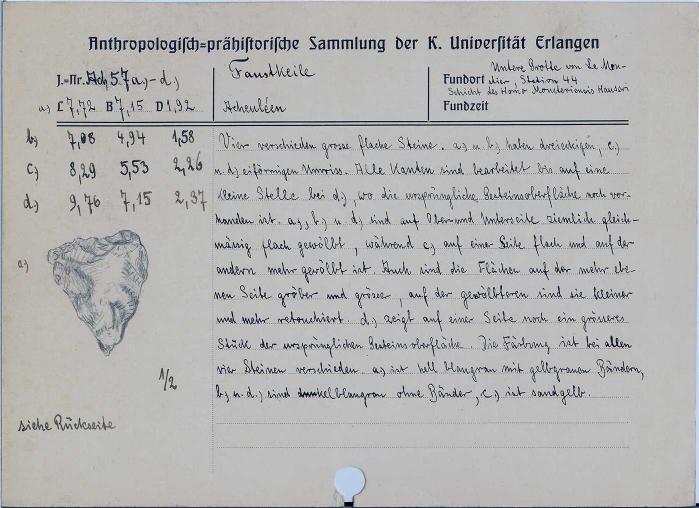 Anthropologisch=prähistorische Sammlung der K. Universität Erlangen
J.=Nr. Ach, 57 a,- d,)
Faustkeile
Fundort Untere Grotte von Le Mou-
stier, Station 44
Schicht des Homo Mousteriensis Hauseri
a,) L 7,72 B 7,15 D 1,92
Acheuléen
Fundzeit
b,) 7,08 4,94 1,58
c,) 8,29 5,53 2,26
d,) 9,76 7,15 2,37
Vier verschieden grosse flache Steine. a,) u. b,) haben dreieckigen, c,)
u. d,) eiförmigen Umriss. Alle Kanten sind bearbeitet bis auf eine
kleine Stelle bei d,), wo die ursprüngliche Gesteinsoberfläche noch vor-
handen ist. a,), b,) u. d,) sind auf Ober- und Unterseite ziemlich gleich-
mässig flach gewölbt, während c,) auf einer Seite flach und auf der
andern mehr gewölbt ist. Auch sind die Flächen auf der mehr ebe-
nen Seite gröber und grösser, auf der gewölbteren sind sie kleiner
und mehr retouchiert. d,) zeigt auf einer Seite noch ein grösseres
Stück der ursprünglichen Gesteinsoberfläche. Die Färbung ist bei allen
vier Steinen verschieden. a,) ist hell blaugrau mit gelbgrauen Bändern,
b,) u. d,) sind dunkelblaugrau ohne Bänder, c,) ist sandgelb.
a,)
1/2
siehe Rückseite